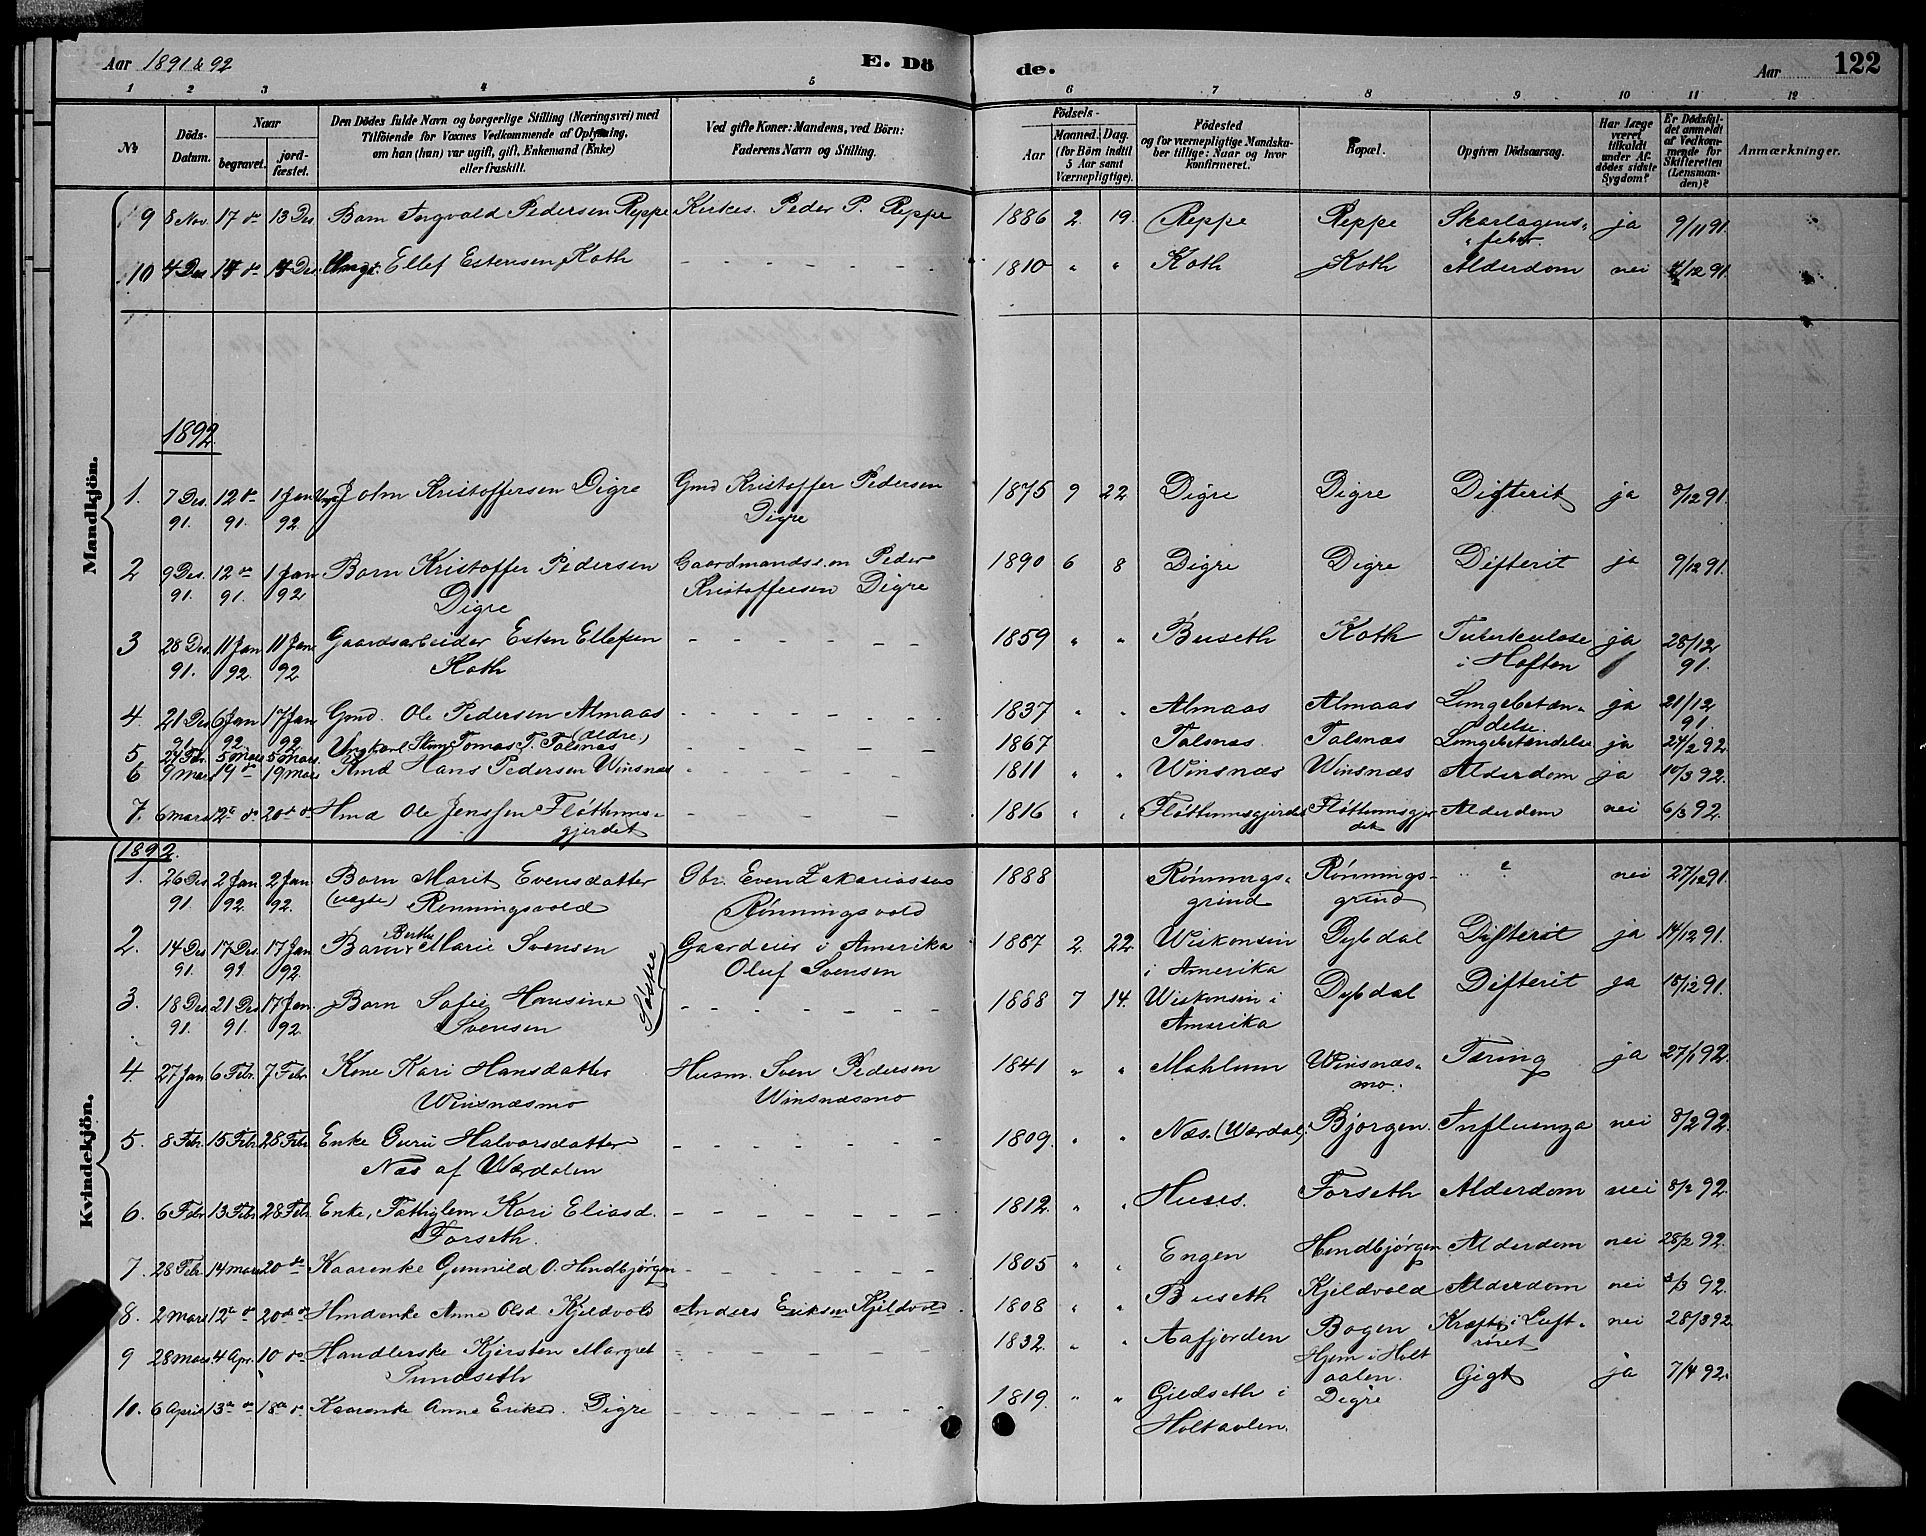 Aar 1891 & 92
E. Dö
de.
Aar
122
1 2 3 4 5 6 7 8 9 10 11 12
№
Döds-Datum.
Naar
begravet.
jord-fæstet.
Den Dödes fulde Navn og borgerlige Stilling (Næringsvei) med
Tilföiende for Voxnes Vedkommende af Oplysning,
om han (hun) var ugift, gift, Enkemand (Enke)
eller fraskilt.
Ved gifte Koner: Mandens, ved Börn:
Faderens Navn og Stilling.
Födsels-
Aar
Maaned. Dag.
(for Börn indtil
5 Aar samt
Værnepligtige).
Födested
og for værnepligtige Mandska-
ber tillige: Naar og hvor
konfirmeret.
Bopæl.
Opgiven Dödsaarsag.
Har Læge
været
tilkaldt
under Af-
dödes sidste
Sygdom?
Er Dödsfal-
det anmeldt
af Vedkom-
mende for
Skifteretten
(Lensman-
den)?
Anmærkninger.
Mandkjön.
9 8 Nov. 17 do 13 Des. Barn Ingvald Pedersen Reppe Kirkes. Peder P. Reppe 1886 2. 19. Reppe Reppe Skarlagens- feber ja 9/11 91.
10 4 Des. Ellef Estensen Koth - - - 1810 " " Koth Koth Alderdom nei 4/12 91.
1892
1. 7 Des. 91. 12 do 91. 1 Jan 92. John Kristoffersen Digre Gmd Kristoffer Pedersen Digre 1875 9 22 Digre Digre Difterit ja 8/12 91.
2 9 Des. 91. 12 do 91. 1 Jan 92 Barn Kristoffer Pedersen Digre Gaardmandssøn Peder Kristoffersen Digre 1890 6 8 Digre Digre Difterit ja 9/12 91.
3 28 Des. 91. 11 Jan 92. 11 Jan 92 Gaardsarbeider Esten Ellefsen Koth - - - 1859 " " Buseth Koth Tuberkulose i Hoften ja 28/12 91.
4. 21 Des 91 6 Jan 92 17 Jan 92 Gmd. Ole Pedersen Almaas (ældre) - - - 1837 " " Almaas Almaas Lungebetæn- delse. ja 21/12 91.
5 24 Febr. 5 Mars 5 Mars. Ungkarl Tomas T. Talsnæs 1867 Talsnæs. Talsnæs Lungebetændelse ja 24/2 92.
6 9 Mars 19 do 19 Mars Kmd Hans Pedersen Winsnæs - - - 1811 " " Winsnæs Winsnæs Alderdom ja 10/3 92.
7. 6 Mars 12te do 20de do Hmd Ole Jenssen Fløttumsgjerdet - - - 1816 " " Fløttumsgjerdet Fløttumsgjer det Alderdom nei 6/3 92.
Kvindekjön.
1892.
1. 26 Des 91. 2 Jan 92. 2 Jan 92. Barn Marit Evensdatter (uægte) Rønningsvold Obr. Even Zakariassen Rønningsvold 1888 Rønnings- grind Rønnings- grind nei 27/12 91.
2. 14 Des 91. 17 Des. 91 17 Jan 92. Barn Berthe Marie Svensen Gaardeier i Amerika Oluf Svensen 1887 2. 22. Wiskonsin i Amerika Dybdal Difterit ja 14/12 91.
Søstre
3. 18 Des 91. 21 Des 91. 17 Jan. 92. Barn Sofie Hansine Svensen - - - 1888 7 14. Wiskonsin i Amerika Dybdal Difterit ja 18/12 91.
4. 27 Jan 6 Febr. 7 Febr. Kone Kari Hansdatter Winsnæsmo Husm. Sven Pedersen Winsnæsmo 1841 " " Mahlum Winsnæs- mo. Tæring ja 27/1 92.
5. 8 Febr. 15 Febr. 28 Febr Enke Guru Halvorsdatter Næs af Wærdalen - - - 1809. " " Næs. (Wærdal). Bjørgen. Influenza nei 8/2 92.
6. 6 Febr. 13 Febr. 28 Febr. Enke, Fattiglem Kari Eliasd. Forseth. - - - 1812. " " Huses. Forseth Alderdom nei 8/2 92.
7. 28 Febr. 14 Mars 20 do Kaarenke Gunnild O. Hindbjørgen - - - 1805 " " Engen Hindbjørgen Alderdom nei 28/2 92.
8. 2 Mars 12te do 20de do Hmdenke Anne Olsd. Kjeldvold Anders Eriksen Kjeldvold. 1808 " " Buseth Kjeldvold Alderdom nei 2/3 92.
9 28 Mars 4 Apr. 10 do Handlerske Kjersten Margret Sundseth - - - 1832. " " Aafjorden Bogen Hjem i Holt aalen. Kræft i Luft- røret nei 28/3 92
10. 6 April 13de do 18de do Kaarenke Anne Eriksd. Digre - - - 1819. " " Gildseth i Holtaalen. Digre Gigt ja 7/4 92.